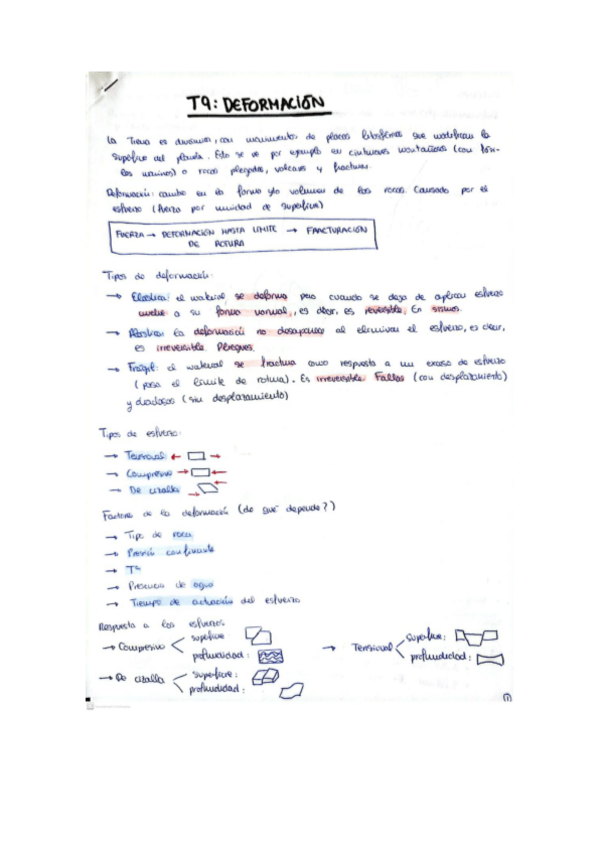 T9: DEFORMACIÓN
La Tierra es dinámica, con movimientos de placas litosféricas que modifican la
superficie del planeta. Esto se ve por ejemplo en cinturones montañosos (con fósi-
les marinos) o rocas plegadas, volcanes y fracturas.
Deformación: cambio en la forma y/o volumen de las rocas. Causado por el
esfuerzo (fuerza por unidad de superficie)
FUERZA → DEFORMACIÓN HASTA LÍMITE → FRACTURACIÓN
DE ROTURA
Tipos de deformación:
→ Elástica: el material se deforma pero cuando se deja de aplicar esfuerzo
vuelve a su forma normal, es decir, es reversible. En sismos.
→ Plástica: la deformación no desaparece al eliminar el esfuerzo, es decir,
es irreversible. Pliegues.
→ Frágil: el material se fractura como respuesta a un exceso de esfuerzo
(pasa el límite de rotura). Es irreversible. Fallas (con desplazamiento)
y diaclasas (sin desplazamiento)
Tipos de esfuerzo:
→ Tensional
→ Compresivo
→ De cizalla
Factores de la deformación (de qué depende?)
→ Tipo de roca
→ Presión confinante
→ Tª
→ Presencia de agua
→ Tiempo de actuación del esfuerzo
Respuesta a los esfuerzos
→ Compresivo
superficie:
profundidad:
→ Tensional
superficie:
profundidad:
→ De cizalla
superficie:
profundidad:
1